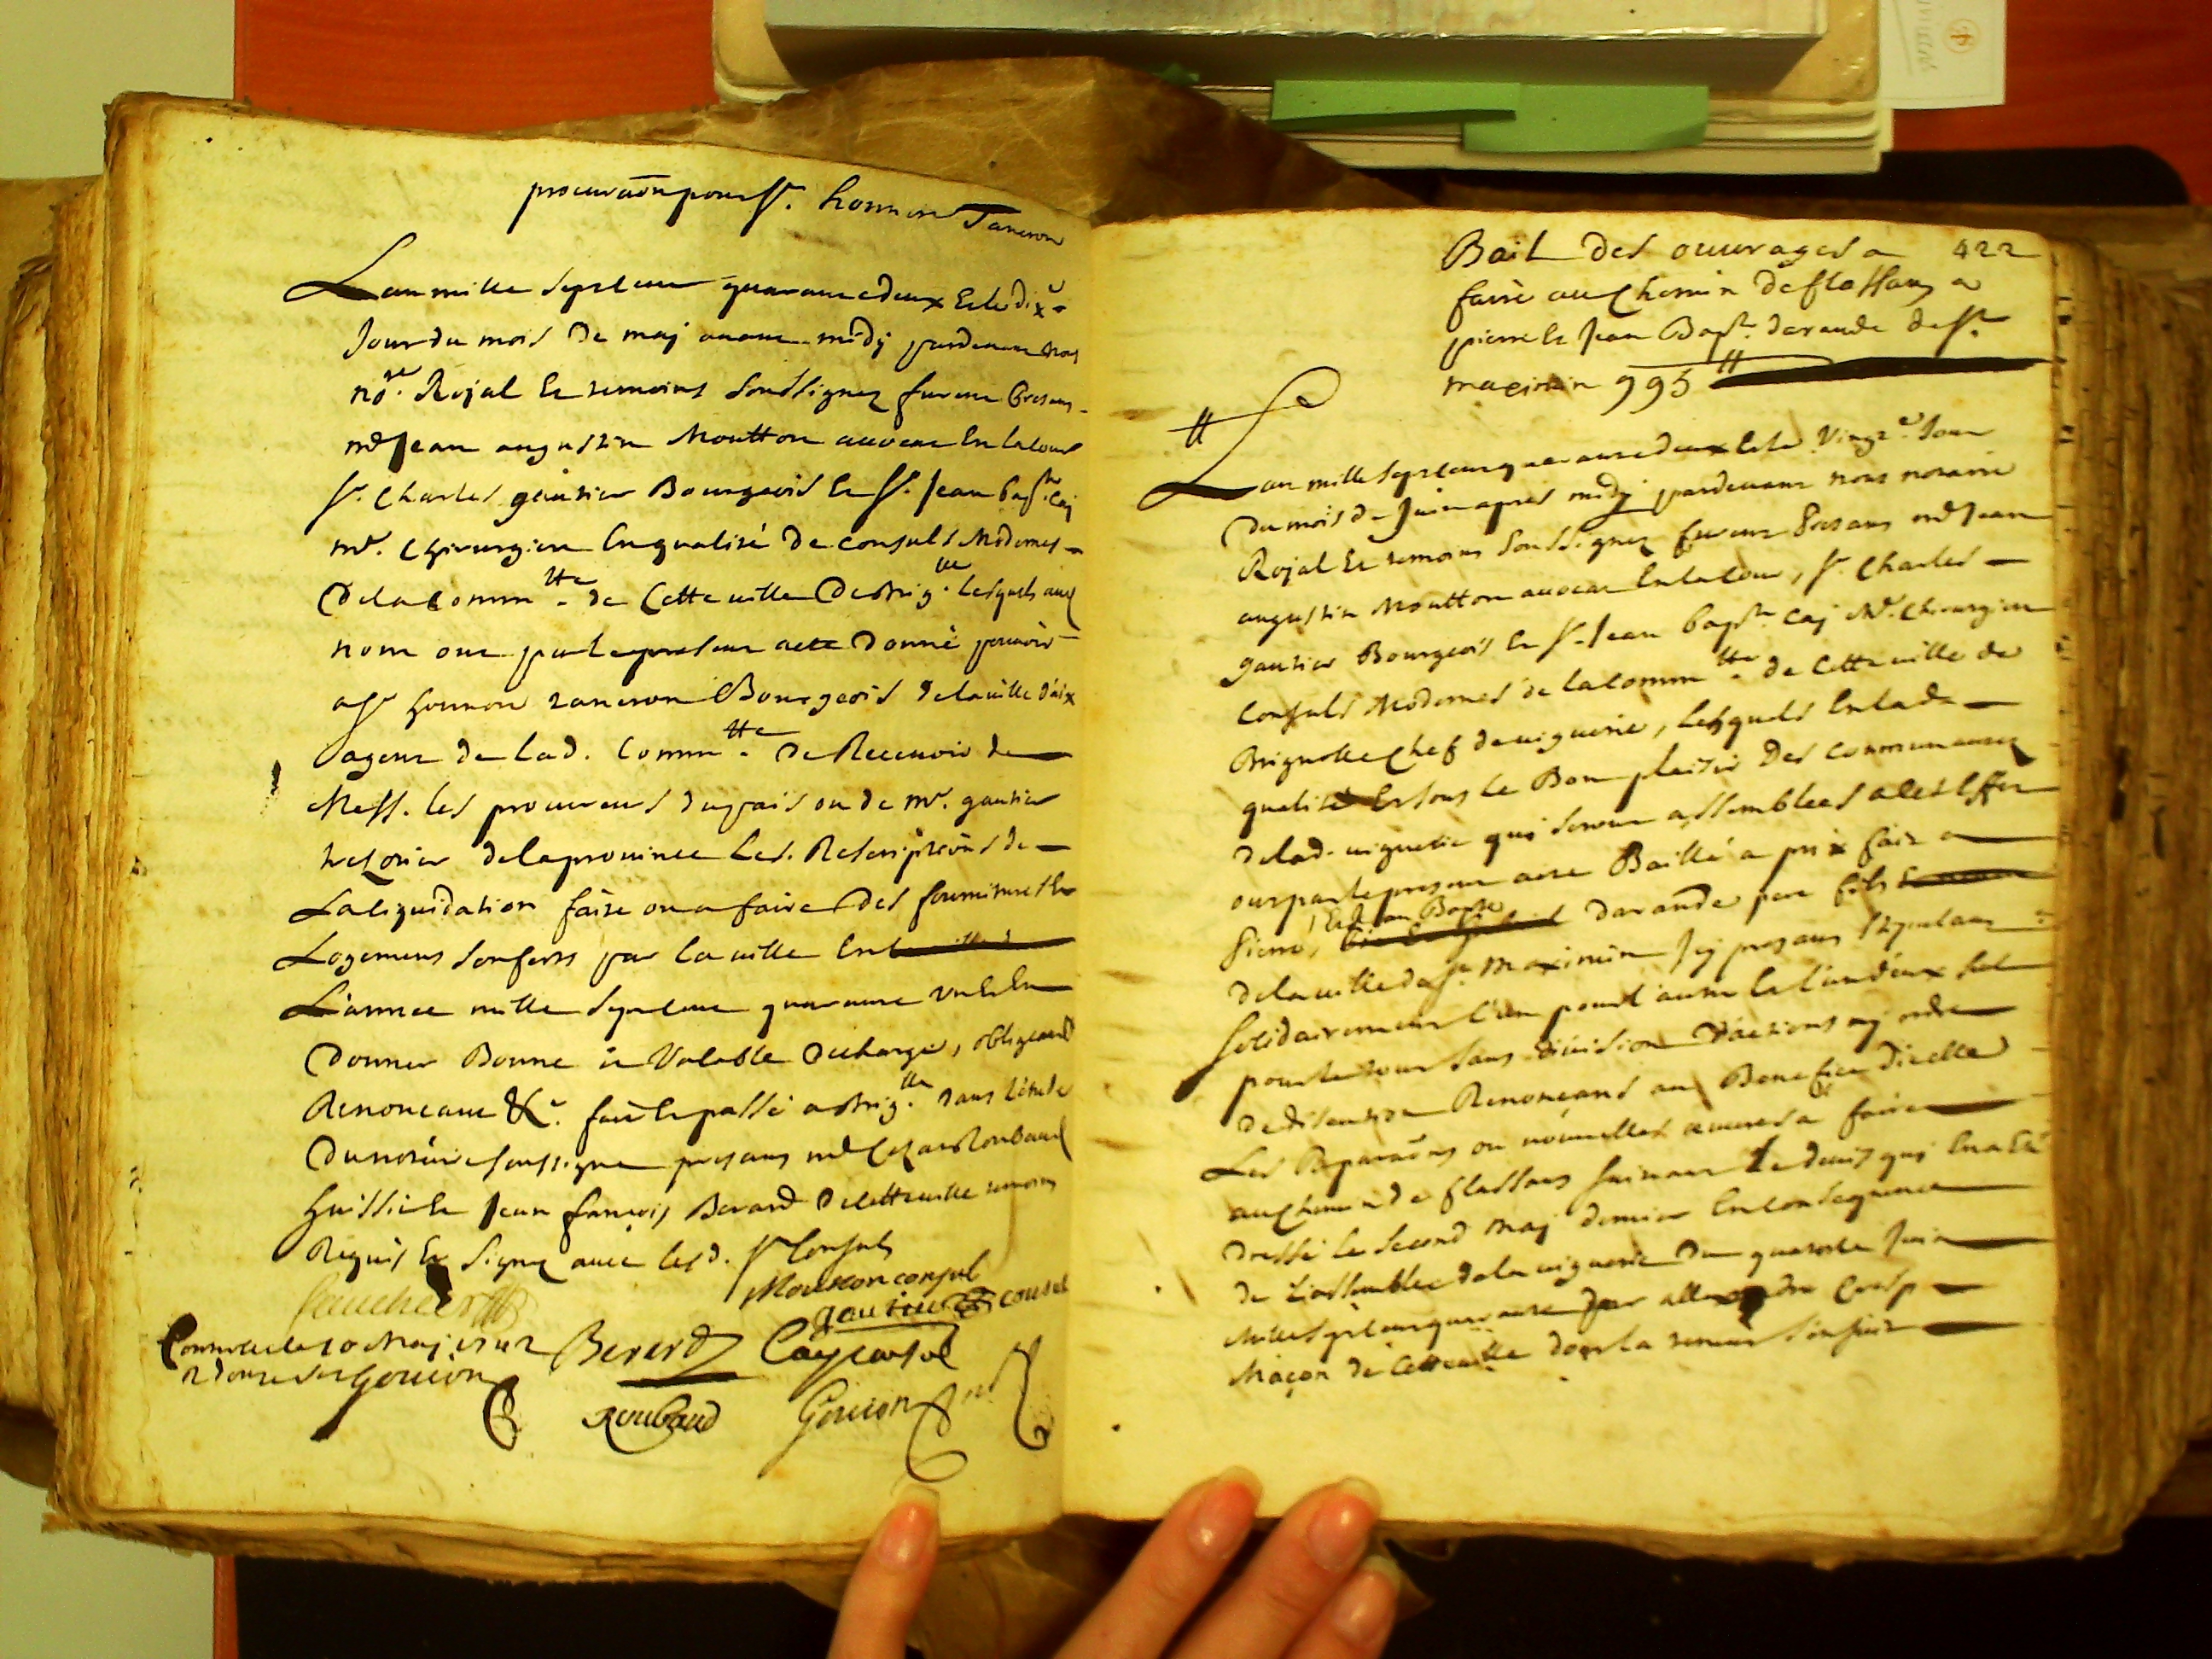 procuraôn pour Sr. honnoré Tancron
L'an mille sept cent quarante deux Et le dixe.
Jour du mois De maj avant midy pardevant nous
nore. Rojal Et temoins soussignez furent Presens
me Jean augustin Moutton avocat En la cour
Sr. Charles gautier Bourgeois Et Sr. Jean bapte. Caj
me. Chirurgien En qualité De consuls Modernes
De la Commtte. de Cette ville De Brigle. Lesquels aud
nom ont par Le present acte Donné pouvoir
a Sr honnoré tancron Bourgeois de la ville d'aix
agent de Lad. Commtte. De Recevoir de
Mess. les procureurs du pais ou de mr. gautier
tresorier de la province Les. Rescriptiôns de
La liquidation faite ou a faire Des fournitures Et
Logemens soufferts par la ville En
L'année mille sept cent quarante un Et En
Donner Bonne et Valable decharge, obligeant
Renonceant &c. fait Et passé a Brigle. dans l'étude
Du notaire soussigné presens me Cezar Roubaud
huissier Et Jean françois Berard De cette ville temoins
Requis Et Signez avec lesd. Srs Consuls
Moutton consul
gautier consul
Controllé le 10 Maj 1742
Berard Cay consul
R douze s. Goujon
Roubaud Goujon not
Bail Des ouuvrages a 422
faire au Chemin De flassans a
pierre Et Jean Bapte. daraude de St.
maximin 995 tt
L'an mille sept cent quarante deux Et le Vingte. Jour
Du mois de Juin apres midy pardevant nous notaire
Rojal Et temoins soussignez furent Presens me Jean
augustin Moutton avocat En la Cour, Sr. Charles
gautier Bourgeois Et Sr. Jean bapte. Caj Me. Chirurgien
Consuls Modernes de la Commtte. de Cette ville de
Brignolle Chef de viguerie, Lesquels En lad.
qualité Et sous Le Bon plaisir Des communautez
De lad. viguerie qui seront assemblées a cet Effet
ont par le present acte Baillé a prix fait a
Pierre, Et Jean Bapte Daraude pere fils
De la ville de St. Maximin Icy presans Stipulans
Solidairement l'un pour l'autre Et l'un d'eux seul
pour le tout sans division D'actions nj ordre
De discution Renonçans au Benefice Dicelles
Les Reparaôns ou nouvelles œuvres a faire
au Chemin de flassans suivant Le devis qui En a Eté
Dressé Le second Maj dernier En Consequence
De L'assemblée de la viguerie Du quatorze Juin
Mille sept cent quarante par allexandre Cresp
Maçon de Cette ville dont la teneur s'ensuit